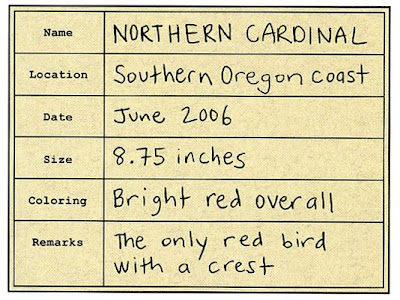 Name NORTHERN CARDINAL
Location Southern Oregon coast
Date June 2006
Size 8.75 inches
Coloring Bright red overall
Remarks The only red bird
with a crest